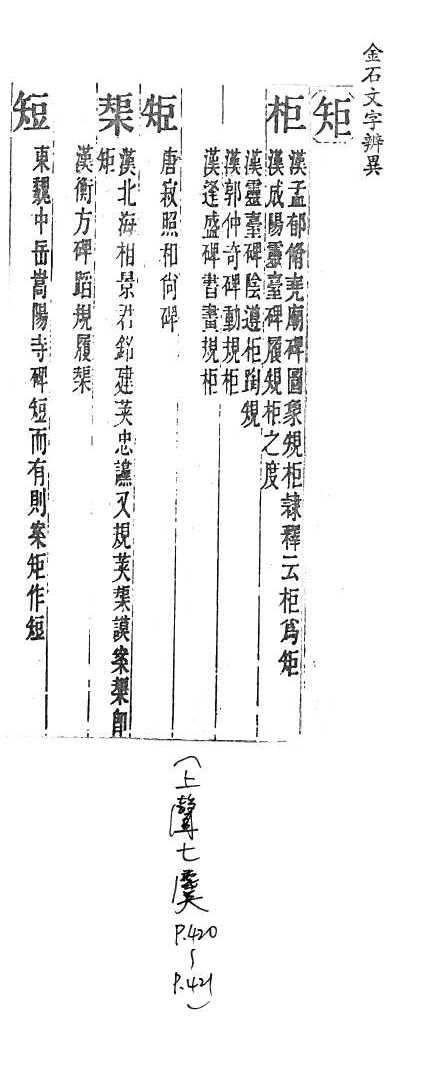 金石文字辨異
矩
柜
漢孟郁脩堯廟碑圖象規柜隸釋云柜爲矩
漢成陽靈臺碑履規柜之度
漢靈臺碑陰遵柜蹈規
漢郭仲奇碑動規柜
漢逢盛碑書畫規柜
矩
唐寂照和尚碑
榘
漢北海相景君銘建莢忠讜又規莢榘謨案榘即
矩
漢衡方碑蹈規履榘
短
東魏中岳嵩陽寺碑短而有則案矩作短
(上聲七麌 P.420~P.421)